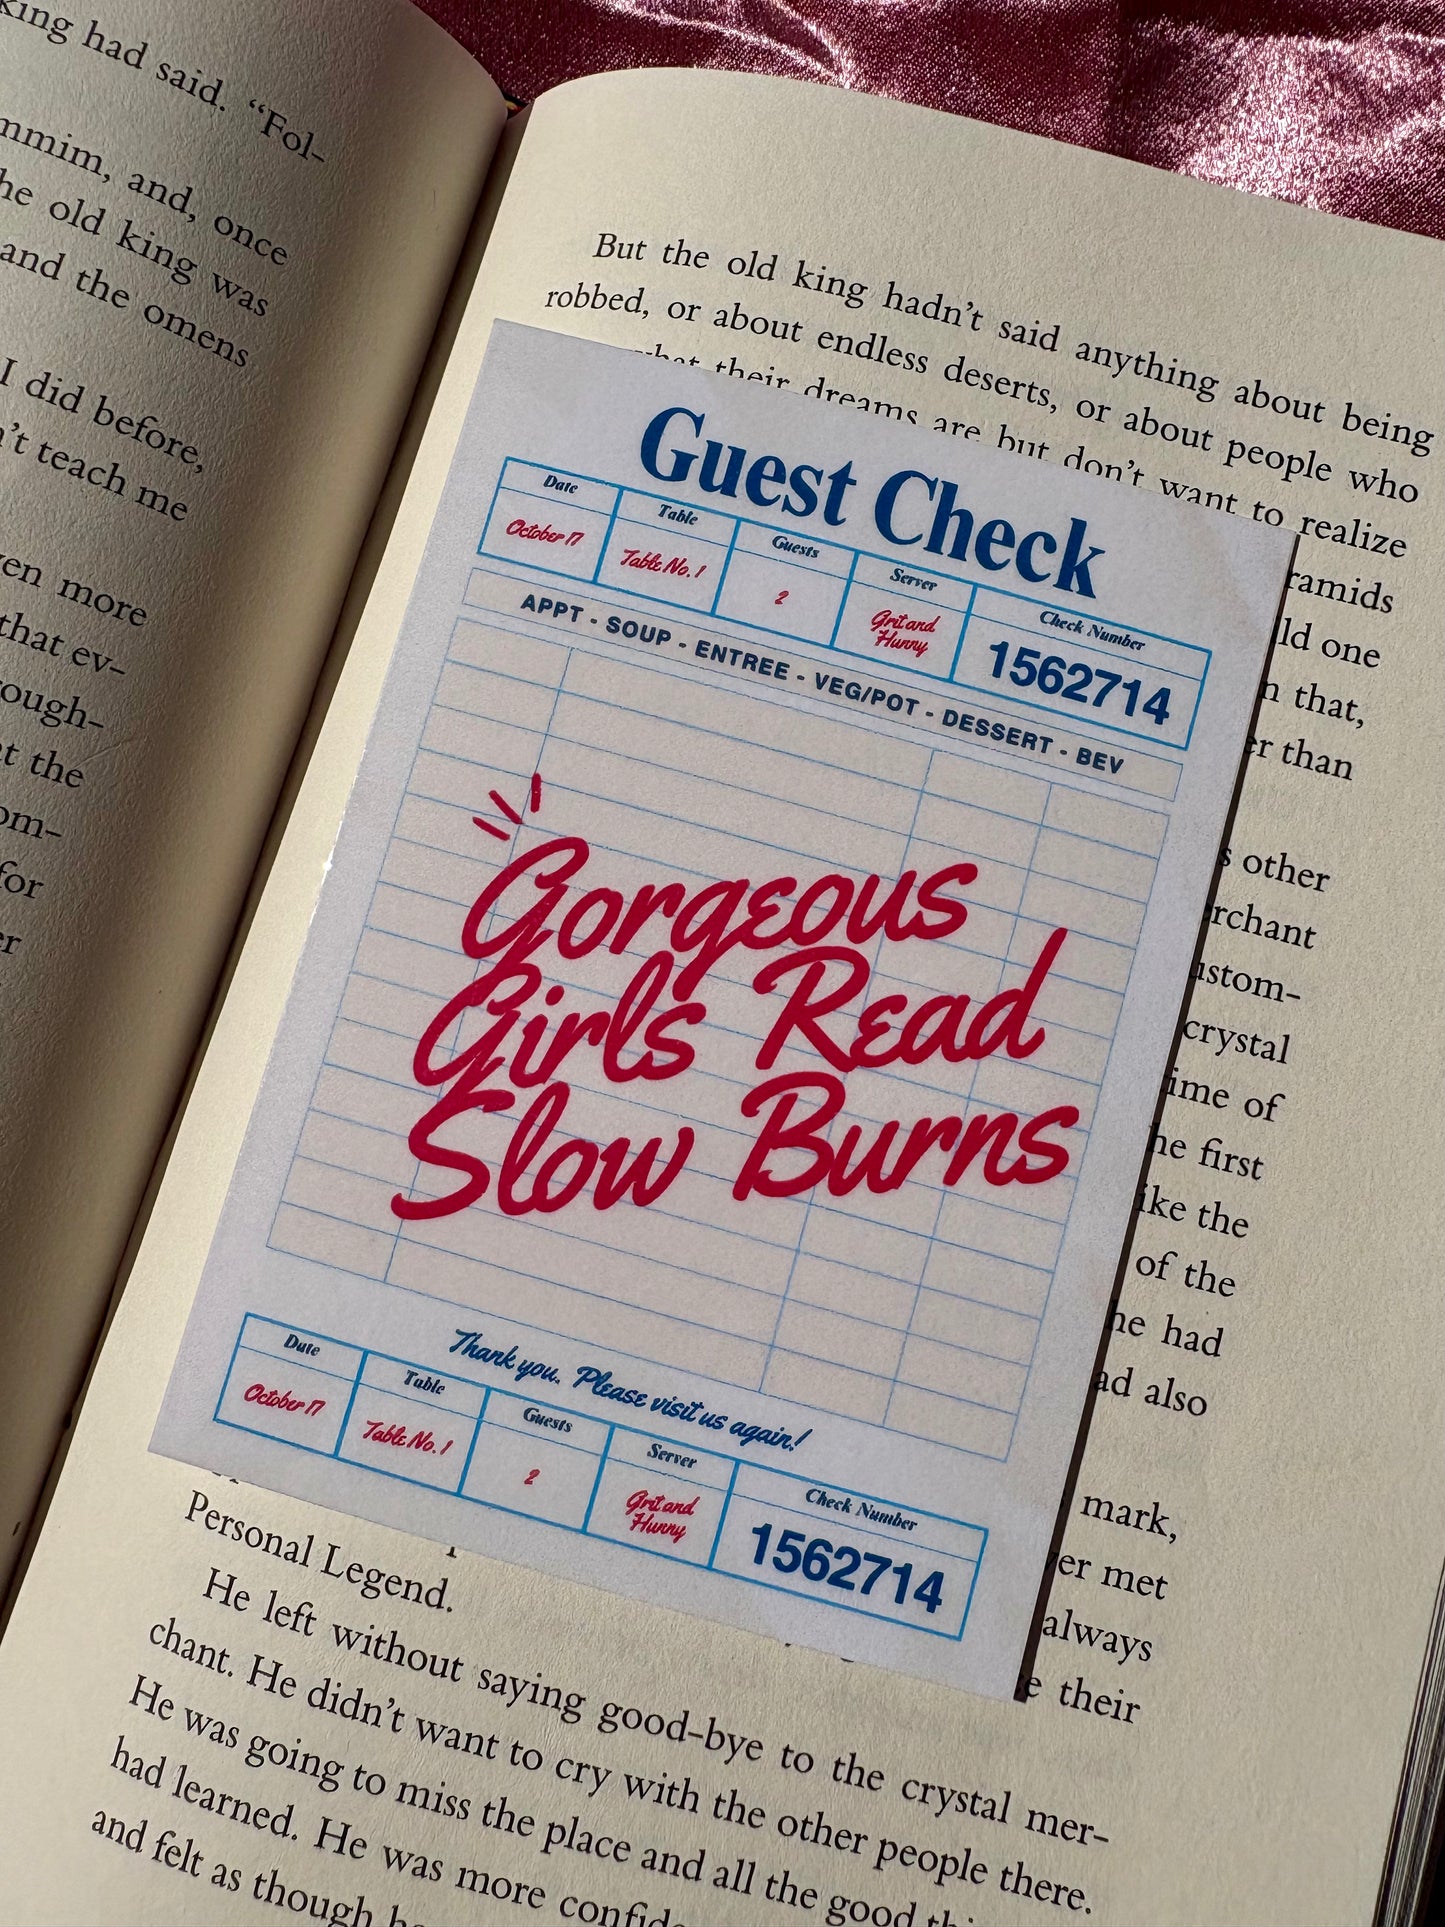 king had said. “Fol-
mmim, and, once
he old king was
and the omens
I did before,
n’t teach me
en more
that ev-
ough-
t the
om-
for
er
But the old king hadn’t said anything about being
robbed, or about endless deserts, or about people who
what their dreams are but don’t want to realize
ramids
ld one
n that,
er than
s other
rchant
ustom-
crystal
ime of
he first
ike the
of the
he had
ad also
mark,
er met
always
e their
Personal Legend.
He left without saying good-bye to the crystal mer-
chant. He didn’t want to cry with the other people there.
He was going to miss the place and all the good
had learned. He was more
and felt as though
Guest Check
Date Table Guests Server Check Number
October 17 Table No. 1 2 Grit and Hunny 1562714
APPT - SOUP - ENTREE - VEG/POT - DESSERT - BEV
Gorgeous
Girls Read
Slow Burns
Thank you. Please visit us again!
Date Table Guests Server Check Number
October 17 Table No. 1 2 Grit and Hunny 1562714